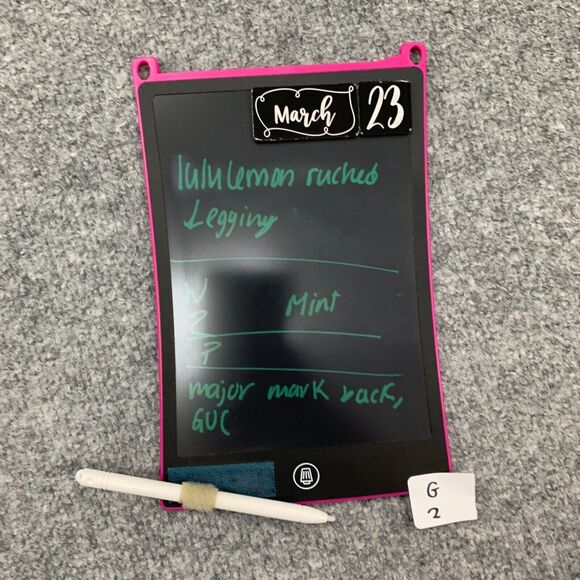 March 23
lululemon ruched
Legging
N
Mint
2
P
major mark back,
GUC
G
2